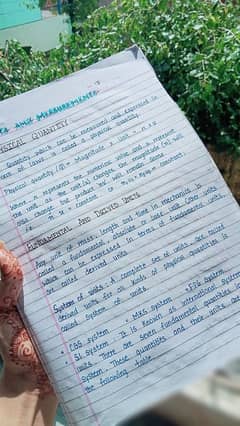 AND MEASUREMENTS
PHYSICAL QUANTITY
Quantity which can be measured and expressed in
of laws is called a physical quantity.
Physical quantity (Q) = Magnitude × unit = n × u
where, n represents the numerical value and u represent
the unit. as the unit (u) changes, the magnitude (n) will
also change but product 'nu' will remain same
i.e. n × u = constant
FUNDAMENTAL AND DERIVED UNITS
Any unit of mass, length and time in mechanics is
called a fundamental, absolute or base unit. Other units
which can be expressed in terms of fundamental units,
are called derived units
System of units : A complete set of units,
derived units for all kinds of physical quantities is
called system of units.
• CGS system • MKS system • FPS system
• SI system : It is known as international system of
units. There are seven fundamental quantities in
system. These quantities and their units are
the following table